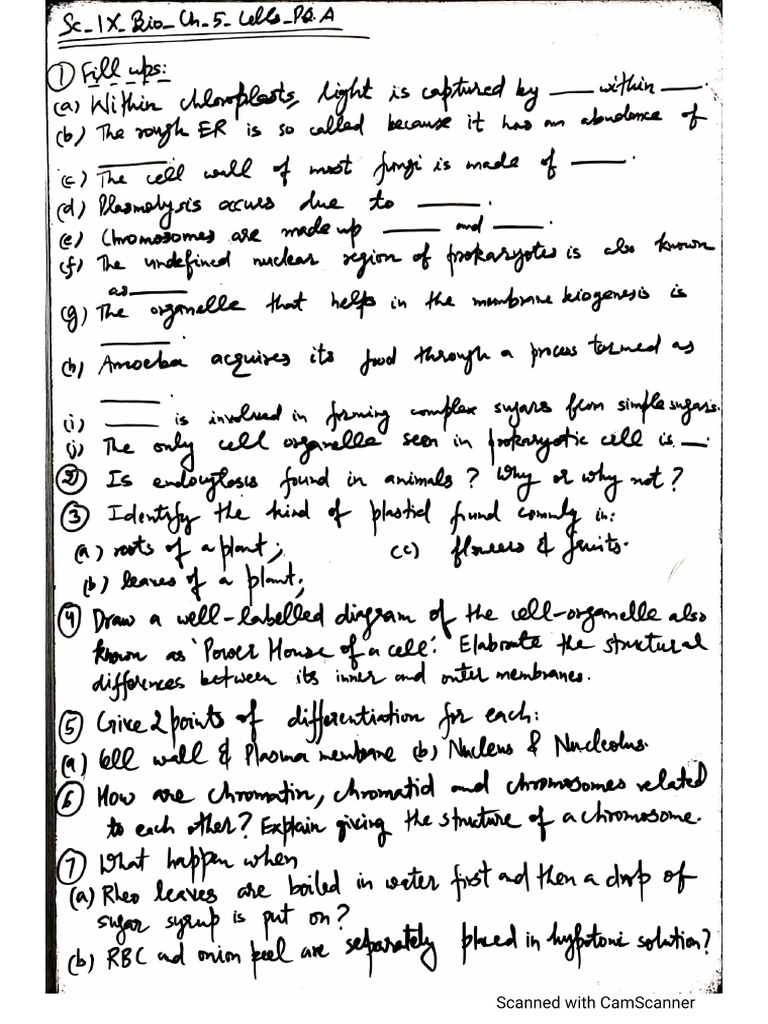 Sc_IX_Bio_Ch_5_Cells_PQ.A
① Fill ups:
(a) Within chloroplasts, light is captured by ___ within ___.
(b) The rough ER is so called because it has an abundence of
______.
(c) The cell wall of most fungi is made of ____.
(d) Plasmolysis occurs due to ____.
(e) Chromosomes are made up ____ and ____.
(f) The undefined nuclear region of prokaryotes is also known
as ____
(g) The organelle that helps in the membrane biogenesis is
______.
(h) Amoeba acquires its food through a process termed as
____.
(i) ____ is involved in forming complex sugars from simple sugars.
(j) The only cell organelle seen in prokaryotic cell is __.
② Is endocytosis found in animals? Why or why not?
③ Identify the kind of plastid found commly in:
(a) roots of a plant; (c) flowers & fruits.
(b) leaves of a plant;
④ Draw a well-labelled diagram of the cell-organelle also
known as 'Power House of a cell'. Elaborate the structural
differences between its inner and outer membranes.
⑤ Give 2 points of differentiation for each:
(a) Cell wall & Plasma membrane (b) Nucleus & Nucleolus.
⑥ How are chromatin, chromatid and chromosomes related
to each other? Explain giving the structure of a chromosome.
⑦ What happen when
(a) Rheo leaves are boiled in water first and then a drop of
sugar syrup is put on?
(b) RBC and onion peel are separately placed in hypotonic solution?
Scanned with CamScanner